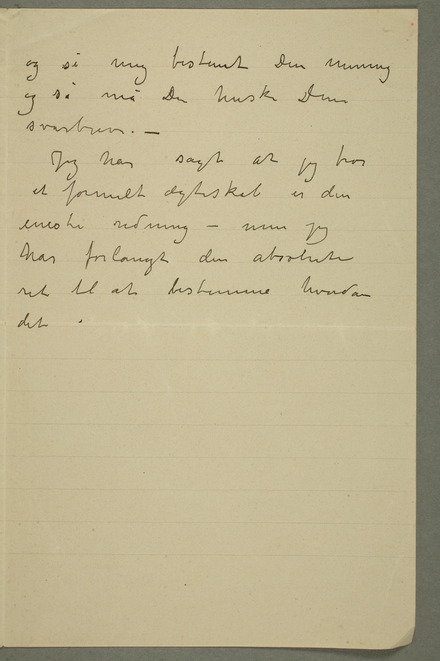 og si mig bestemt Den mening
og så må De huske Dem
svarbrev. —
Jeg har sagt at jeg tror
et formelt ægteskab er den
eneste redning — men jeg
har forlangt den absolute
ret til at bestemme hvordan
det